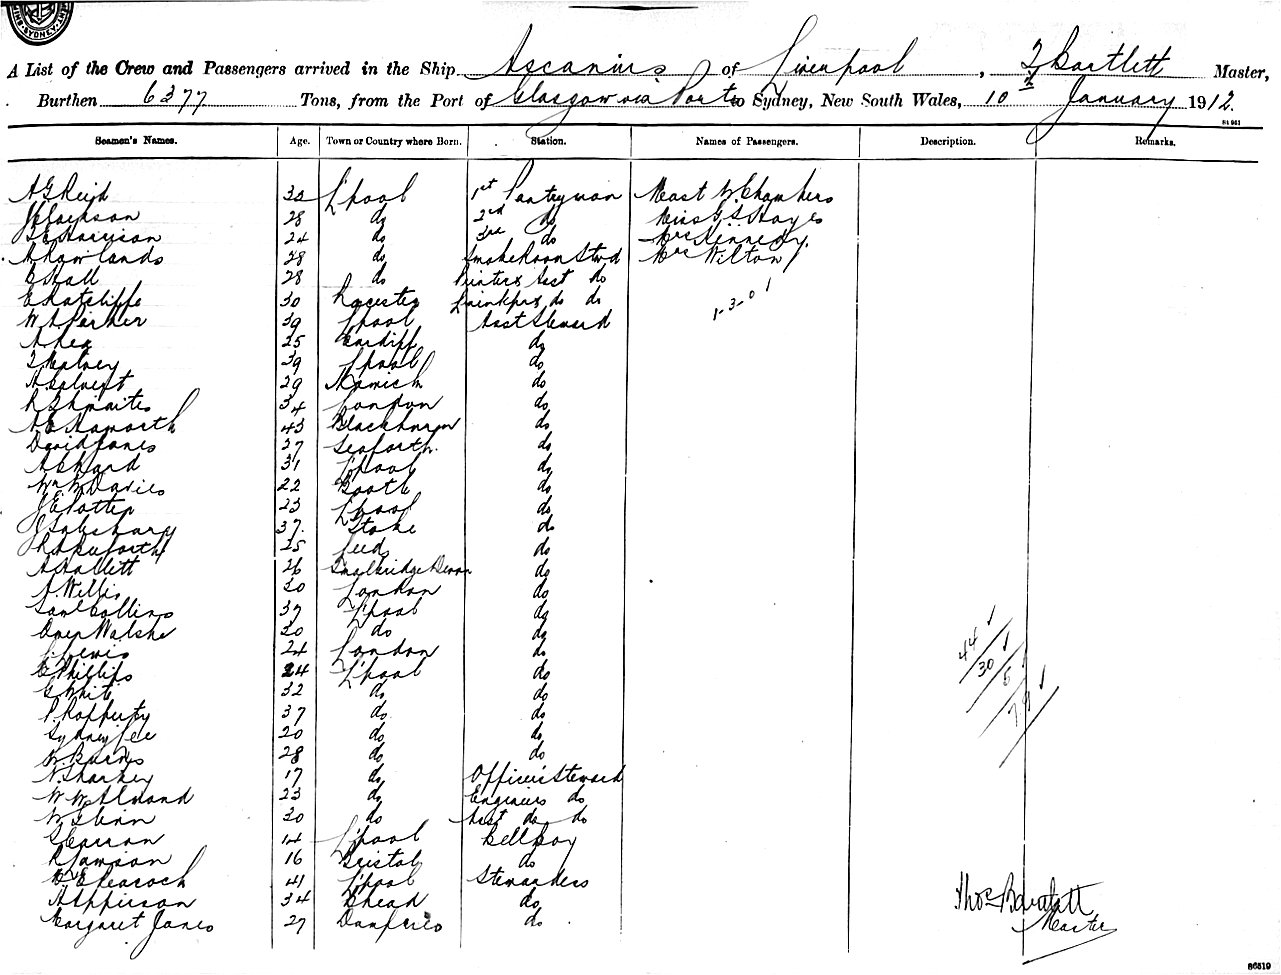 A List of the Crew and Passengers arrived in the Ship Ascanius of Liverpool, T Bartlett Master,
Burthen 6377 Tons, from the Port of Glasgow via Ports to Sydney, New South Wales, 10th January 1912.
81 961
Seamen's Names. Age. Town or Country where Born. Station. Names of Passengers. Description. Remarks.
A G Reid 32 L'pool 1st Pantryman Mast W. Chambers
J Jackson 28 do 2nd do Miss G. S. Hayes
Harrison 24 do 3rd do Mrs Kennedy.
Rowlands 28 do Smoke Room Stwd Mrs Wilton
E Hall 28 do Asst do
E Ratcliffe 30 Leicester do do 1-3-0 1
W A Parker 39 L'pool Asst Steward
A. Rea 25 Cardiff do
39 L'pool do
A. Calvert 29 Norwich do
R. Thwaites 34 London do
Haworth 43 Blackburn do
David Jones 27 Seaforth. do
Ward 31 L'pool do
Wm W Davies 22 Bootle do
J E Potter 23 L'pool do
J Salesbury 37. Stoke do
25 Leeds do
A Hallett 26 Devon do
A. Willis 30 London do
Saml Collins 37 L'pool do
Owen Walshe 30 do do
Lewis 24 London do
C Phillips 24 L'pool do
G White 32 do do
P. Rafferty 37 do do
Sydney Lee 20 do do
W. Burns 28 do do
N. Sharkey 17 do Officers' Steward
W W Almond 23 do Engineers do
W Glenn 30 do Asst do do
Curran 14 L'pool Bell Boy
R Jamson 16 Bristol do
E Peacock 41 L'pool Stewardess
34 B'head do
Margaret Jones 27 Dumfries do
44
30
5
79
Thos Bartlett
Master
86519